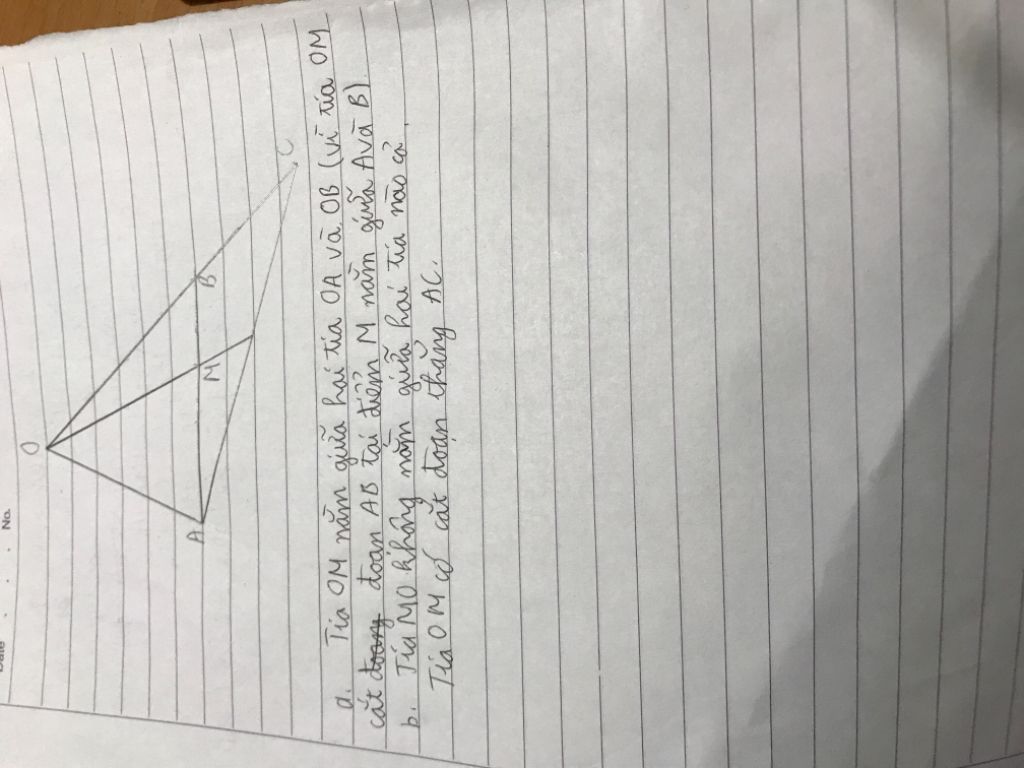 Date . . No.
O
A
M
B
C
a. Tia OM nằm giữa hai tia OA và OB (vì tia OM
cắt đoạng đoạn AB tại điểm M nằm giữa A và B)
b. Tia MO không nằm giữa hai tia nào cả
Tia OM có cắt đoạn thẳng AC.